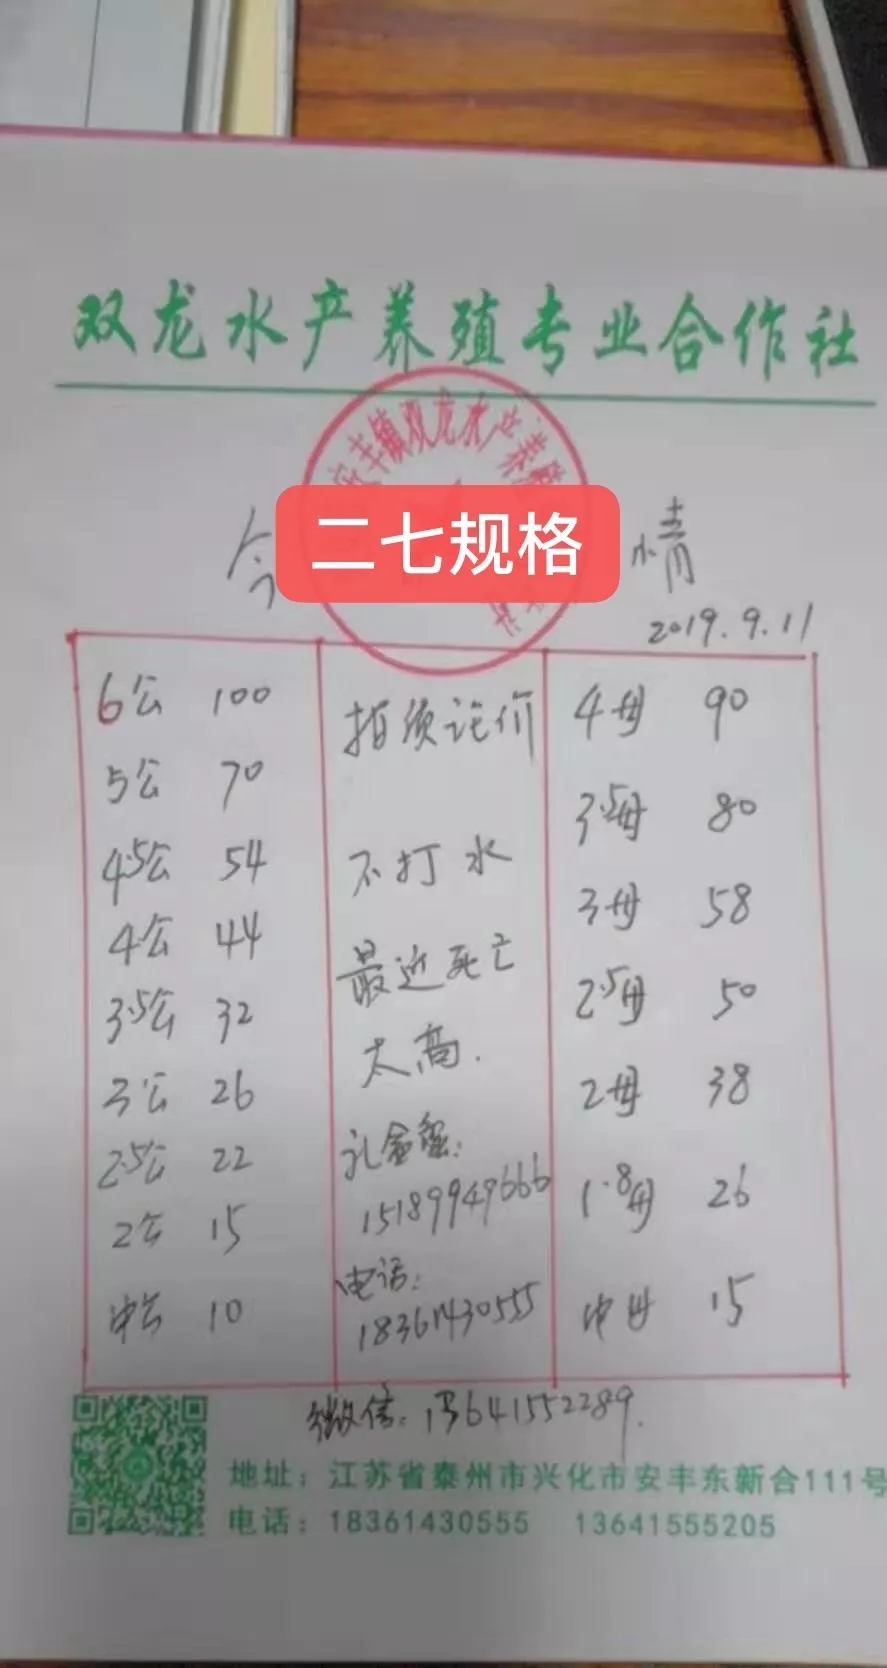 双龙水产养殖专业合作社
安丰镇双龙水产养殖
今
二七规格
情
2019.9.11
6公 100
5公 70
4.5公 54
4公 44
3.5公 32
3公 26
2.5公 22
2公 15
中公 10
拍须论价
不打水
最近死亡
太高.
礼盒蟹:
15189949666
电话:
18361430555
4母 90
3.5母 80
3母 58
2.5母 50
2母 38
1.8母 26
中母 15
微信:13641552289.
地址:江苏省泰州市兴化市安丰东新合111号
电话:18361430555 13641555205